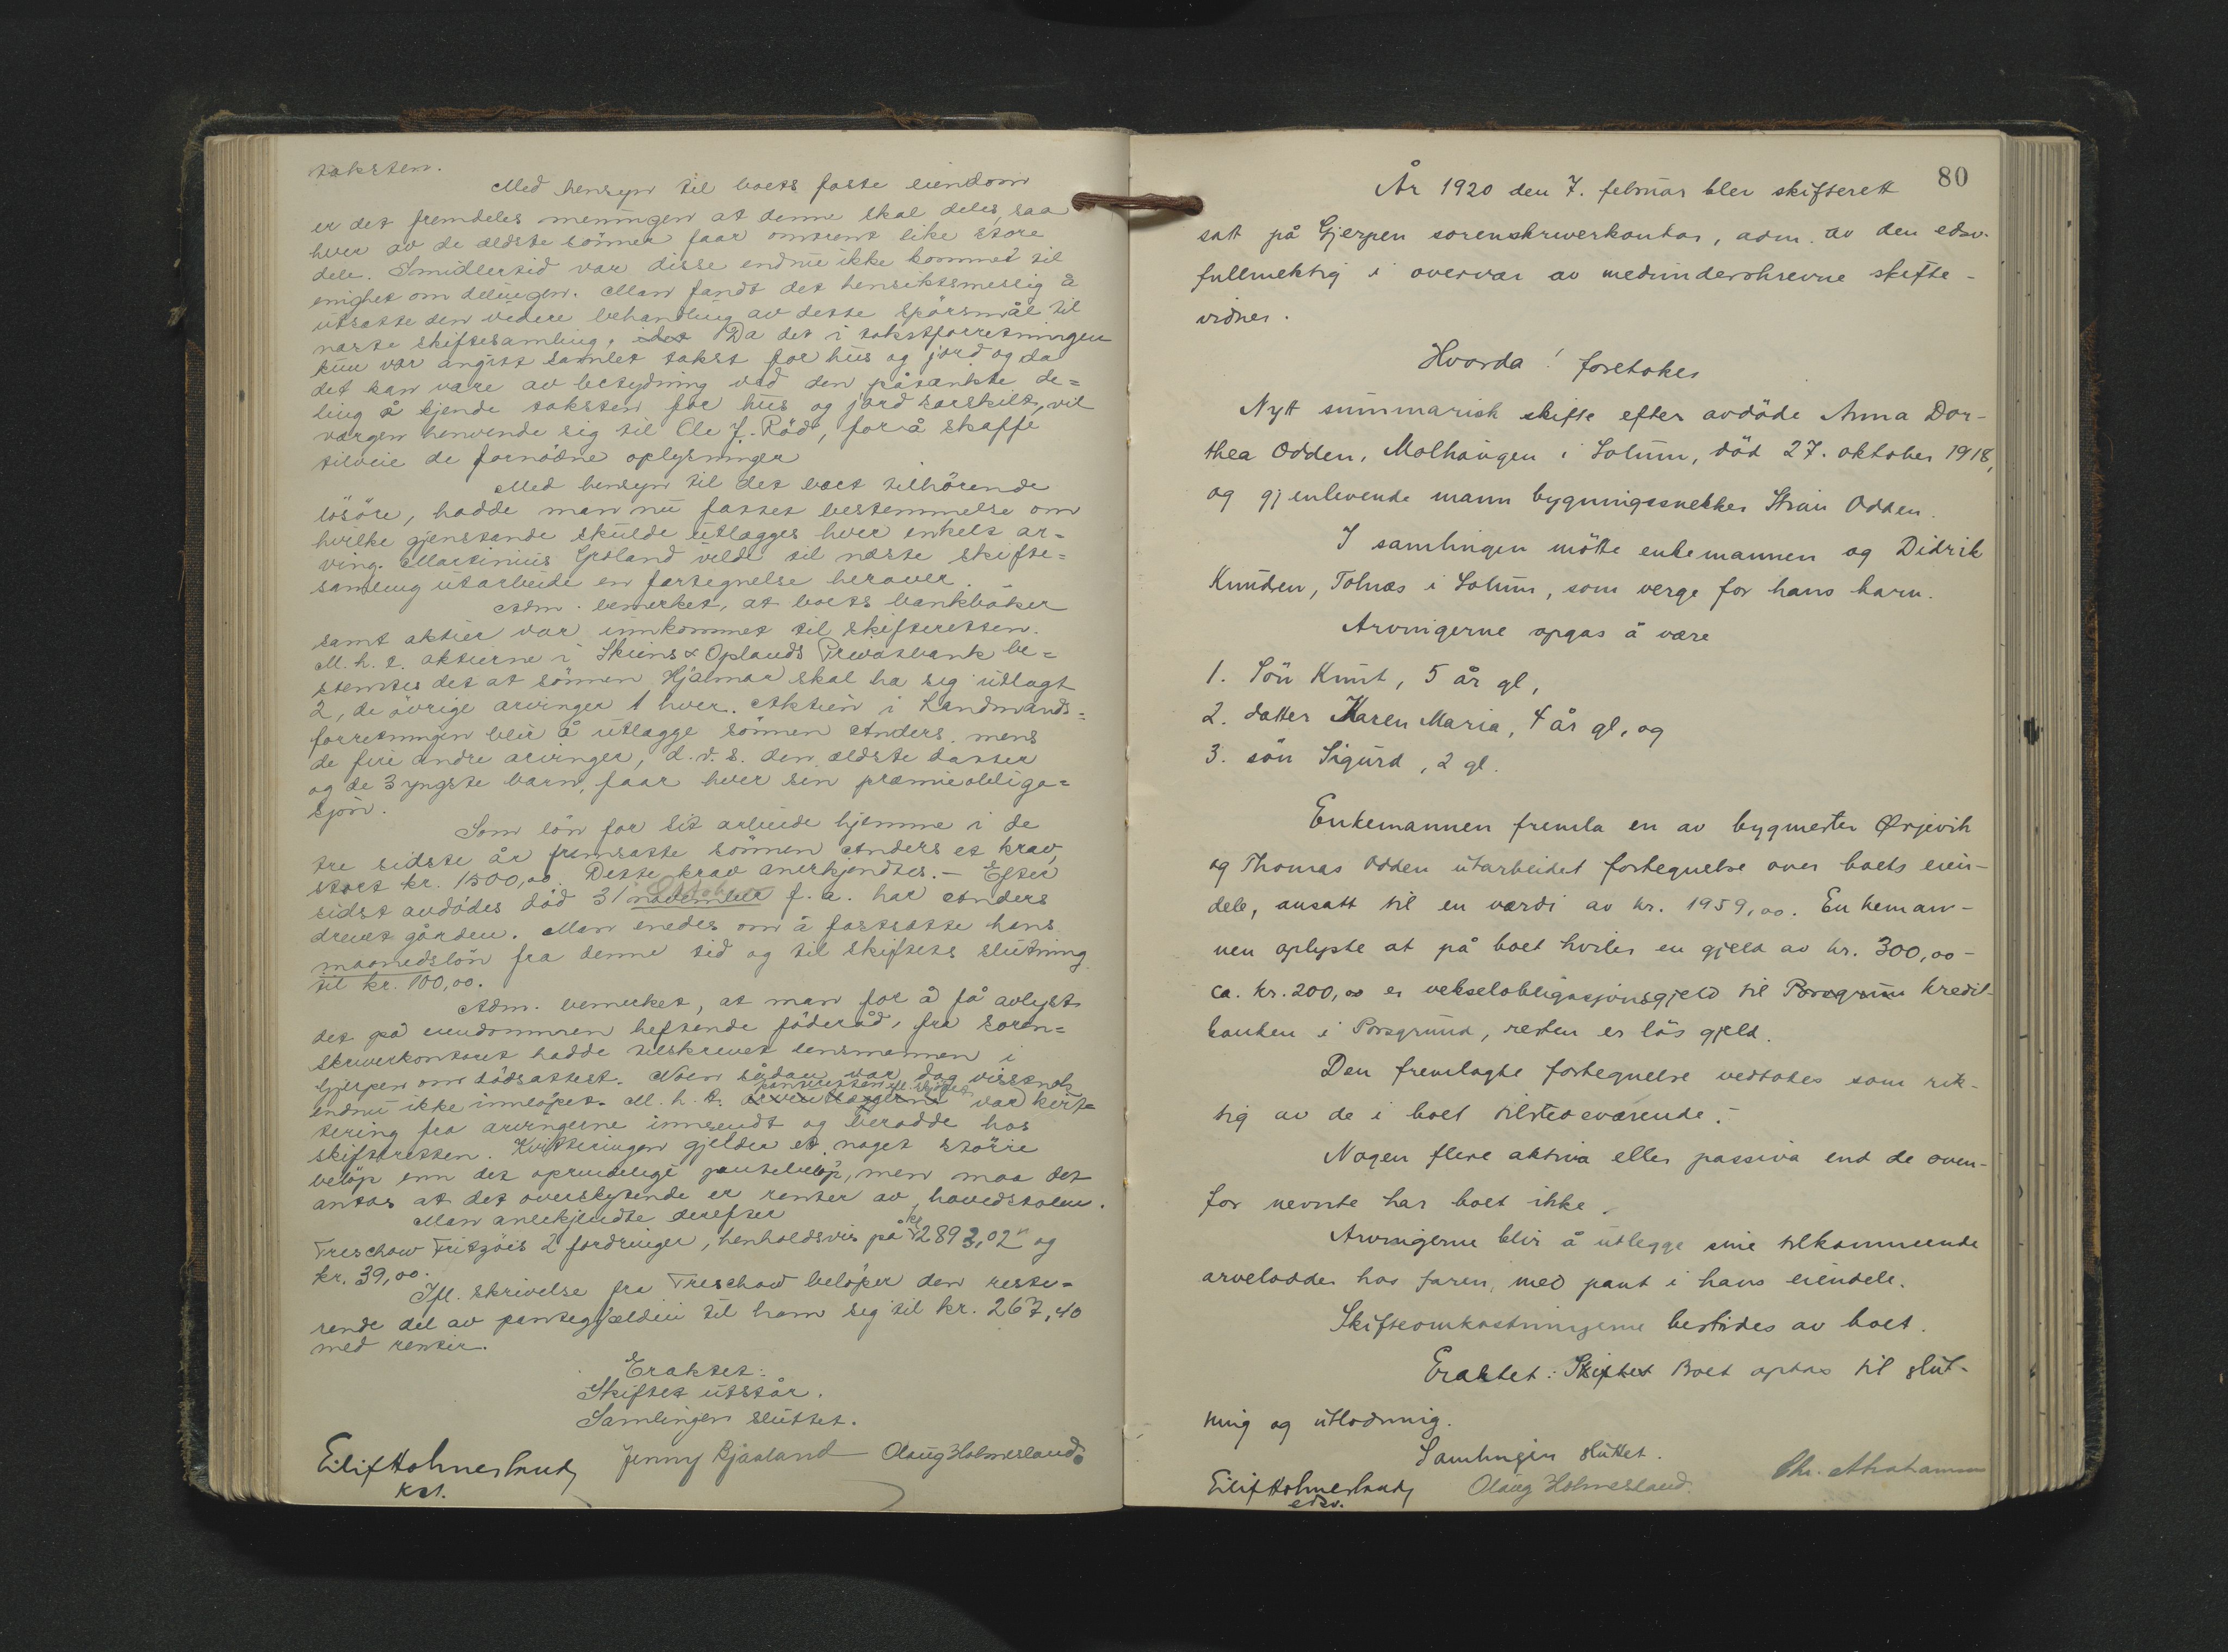 taksten.
Med hensyn til boets faste eiendom
er det fremdeles meningen at denne skal deles, saa
hver av de ældste sönner faar omtrent like store
dele. Imidlertid var disse endnu ikke kommet til
enighet om delingen. Man fandt det hensiktsmessig å
utsætte den videre behandling av dette spörsmål til
næste skiftesamling, idet Da det i takstforretningen
kun var angitt samlet takst for hus og jord og da
det kan være av betydning ved den påtænkte de=
ling å kjende taksten for hus og jord særskilt, vil
værgen henvende sig til Ole J. Röd, for å skaffe
tilveie de fornödne oplysninger
Med hensyn til det boet tilhörende
lösöre, hadde man nu fattet bestemmelse om
hvilke gjenstande skulde utlægges hver enkelt ar=
ving. Martinius Grøland vilde til næste skifte=
samling utarbeide en fortegnelse herover. –
Adm. bemerket, at boets bankböker
samt aktier var innkommet til skifteretten.
M. h. t. aktierne i Skiens & Oplands Privatbank be=
stemtes det at sönnen Hjalmar skal ha sig utlagt
2, de övrige arvinger 1 hver. Aktien i Landmands=
forretningen blir å utlægge sönnen Anders, mens
de fire andre arvinger, d. v. s. den ældste datter
og de 3 yngste barn, faar hver sin præmieobliga=
sjon.
Som lön for sit arbeide hjemme i de
tre sidste år fremsatte sönnen Anders et krav,
stort kr. 1500,00. Dette krav anerkjendtes. – Efter
sidst avdödes död 31 november f. a. har Anders
drevet gården. Man enedes om å fastsætte hans
maanedslön fra denne tid og til skiftets slutning
til kr. 100,00.
Adm. bemerket, at man for å få avlyst
det på eiendommen heftende föderåd, fra soren=
skriverkontoret hadde tilskrevet lensmannen i
Gjerpen om dödsattest. Noen sådan var dog visstnok
endnu ikke innlöpet. M. h. t. var kvit=
tering fra arvingerne innsendt og beradde hos
skifteretten. Kvitteringen gjelder et noget större
belöp enn det oprindelige pantebelöp, men maa det
antas at det overskytende er renter av hovedstolen.
Man anerkjendte derefter
Treschow Fritzöes 2 fordringer, henholdsvis på kr 2893,02 og
kr. 39,00.
Ifl. skrivelse fra Treschow belöper den reste=
rende del av pantegjælden til ham sig til kr. 267,40
med renter.
Eraktet:
Skiftet utstår.
Samlingen sluttet.
Eilif Holmesland Jenny Bjaaland Olaug Holmesland.
kst.
80
År 1920 den 7. februar blev skifterett
satt på Gjerpen sorenskriverkontor, adm. av den edsv.
fullmektig i overvær av medunderskrevne skifte-
vidner.
Hvorda! foretokes
Nytt summarisk skifte efter avdöde Anna Dor-
thea Odden, Molhaugen i Solum, död 27. oktober 1918,
og gjenlevende mann bygningssnekker Odden.
I samlingen mötte enkemannen og Didrik
Knudsen, Tolnæs i Solum, som verge for hans barn.
Arvingerne opgas å være
1. Sön Knut, 5 år gl,
2. datter Karen Maria, 4 år gl, og
3. sön Sigurd, 2 gl.
Enkemannen fremla en av bygmester Ørjevik
og Thomas Odden utarbeidet fortegnelse over boets eien-
dele, ansatt til en værdi av kr. 1959,00. Enkeman-
nen oplyste at på boet hviler en gjeld av kr. 300,00 –
ca. kr. 200,00 er vekselobligasjonsgjeld til Porsgrunn kredit-
banken i Porsgrund, resten er lös gjeld.
Den fremlagte fortegnelse vedtokes som rik-
tig av de i boet tilstedeværende. –
Nogen flere aktiva eller passiva end de oven-
for nevnte har boet ikke.
Arvingerne blir å utlegge sine tilkommende
arvelodder hos faren, med pant i hans eiendele.
Skifteomkostningerne bestrides av boet.
Eraktet: Skiftet Boet optas til slut-
ning og utlodning.
Samlingen sluttet.
Eilif Holmesland Olaug Holmesland. Chr. Abrahamsen
edsv.